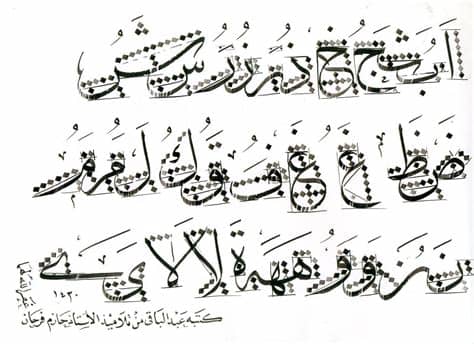 ا ب ث ج ح خ ذ ر ز ر س ش
ض ظ ع غ ف ق و ك ل م م م
ن ن ز و و ه ه ة لا لا ي ي
١٤٣٠
كتبه عبد الباقي من تلاميذ الأستاذ حازم فرحان